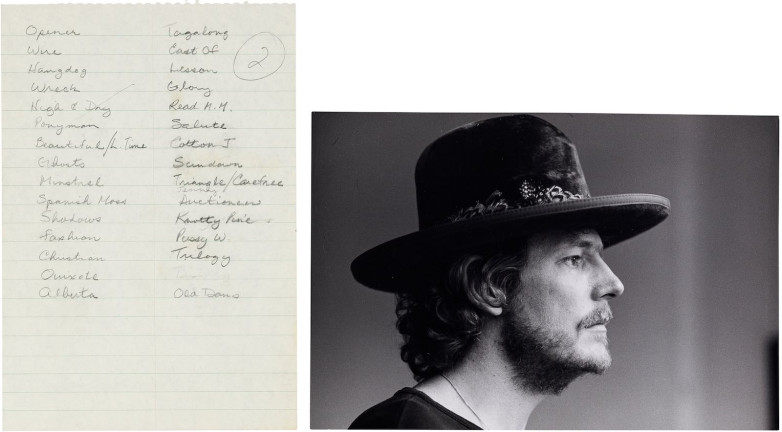 Opener
Wire
Hangdog
Wreck
High & Dry
Ponyman
Beautiful/L. Time
Ghosts
Minstrel
Spanish Moss
Shadows
Fashion
Christian
Alberta
Tagalong
Cast Of
Lesson
Glory
Read M.M.
Salute
Cotton J
Sundown
Triangle/Carefree
Auctioneer
Knotty Pine
Pussy W.
Trilogy
Old Dans
2